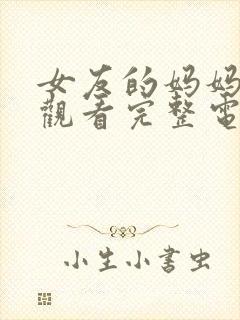 女友的妈妈
觀看完整電
小生小書虫